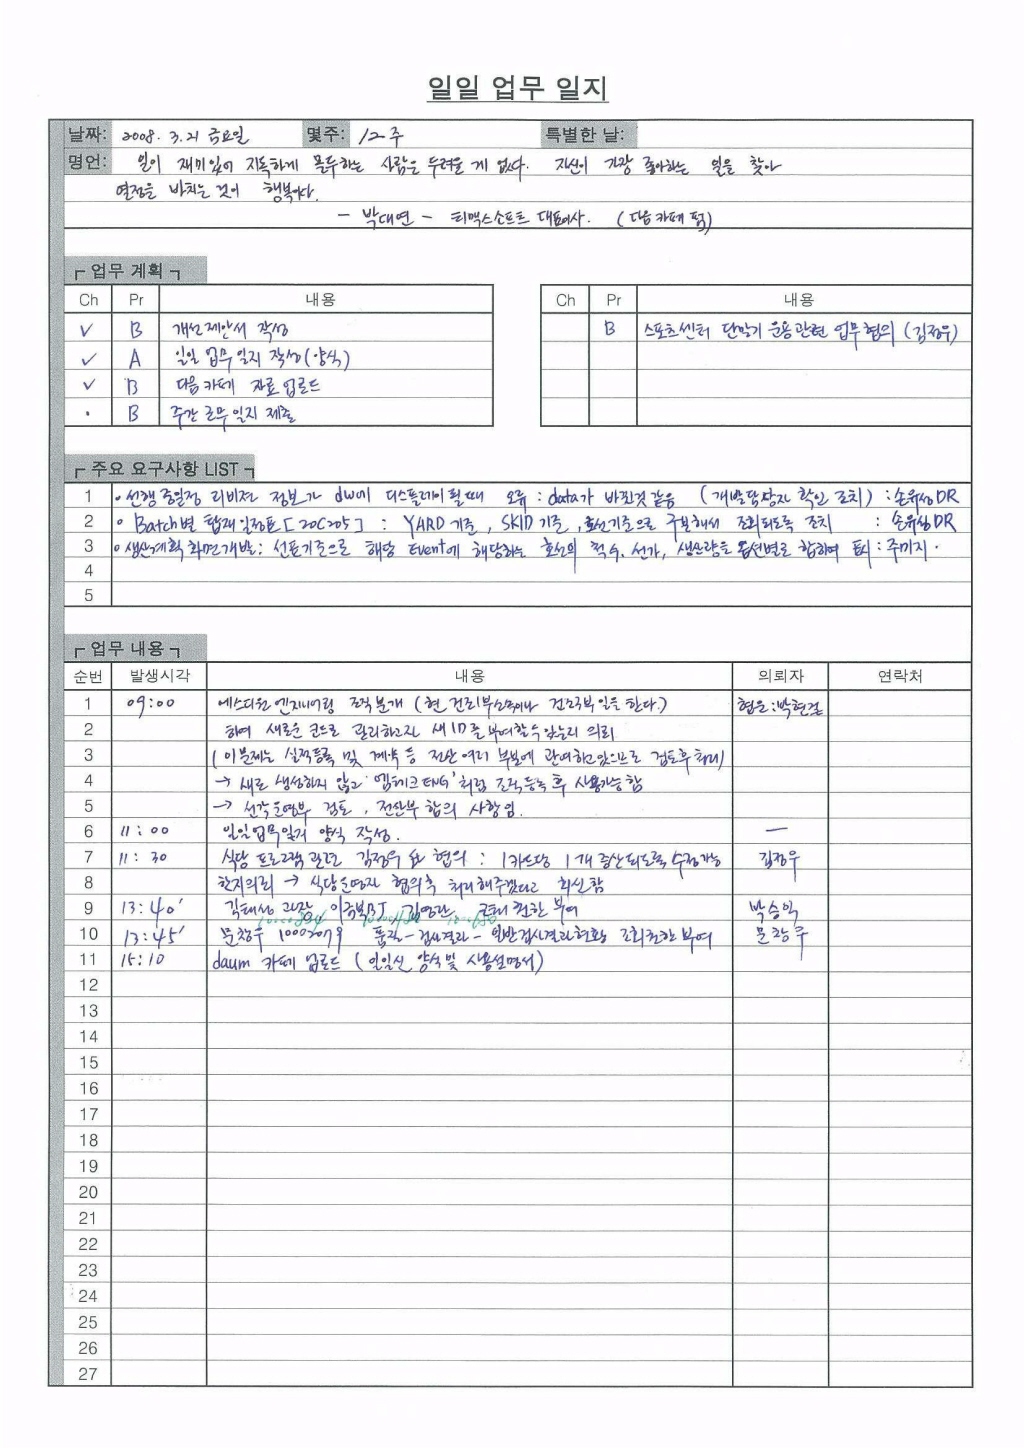 일일 업무 일지
날짜: 2008. 3. 21 금요일 몇주: 12주 특별한 날:
명언: 일이 재미있어 지독하게 몰두하는 사람은 두려울 게 없다. 자신이 가장 좋아하는 일을 찾아
열정을 바치는 것이 행복이다.
- 박대연 - 티맥스소프트 대표이사. (다음 카페 펌)
┌ 업무 계획 ┐
Ch Pr 내용 Ch Pr 내용
✓ B 개선제안서 작성 B 스포츠센터 단말기 운용관련 업무협의 (김정우)
✓ A 일일 업무일지 작성(양식)
✓ B 다음카페 자료 업로드
· B 주간 근무일지 제출
┌ 주요 요구사항 LIST ┐
1 • 선행중일정 리비젼 정보가 dw에 디스플레이 될때 오류 : data가 바뀐것 같음 (개발담당자 확인 조치) : 손유성DR
2 • Batch별 탑재일정표[20C205] : YARD 기준, SKID 기준, 호선기준으로 구분하여 조회되도록 조치 : 손유성DR
3 • 생산계획 화면개발: 선표기준으로 해당 Event에 해당하는 호선의 척수, 선가, 생산량을 옵션별로 합하여 표시 : 주미지.
4
5
┌ 업무 내용 ┐
순번 발생시각 내용 의뢰자 연락처
1 09:00 에스디원엔지니어링 조직분개 (현 건리부소속이나 건조부 일을 한다.) 협운:박현철
2 하여 새로운 코드로 관리하고자 새 ID를 부여할수 있는지 의뢰
3 (이문제는 실적등록 및 계약 등 전산 여러 부분에 관여하고 있으므로 검토후 처리)
4 → 새로 생성하지 않고 '엠테크ENG'처럼 조직등록 후 사용가능함
5 → 선각운영부 검토, 전산부 합의 사항임.
6 11:00 일일업무일지 양식 작성. —
7 11:30 식당 프로그램 관련 김정우 협의 : 1카드당 1개 증산되도록 수정가능 김정우
8 한지의뢰 → 식당운영자 협의측 처리해주겠다고 회신함
9 13:40' 김태성 과장 이국복BJ 김영란 권한 부여 박승익
10 13:45' 문창우 10003079 품질-검사결과-일반검사결과현황 조회권한 부여 문창우
11 15:10 daum 카페 업로드 (일일신 양식 및 사용설명서)
12
13
14
15
16
17
18
19
20
21
22
23
24
25
26
27